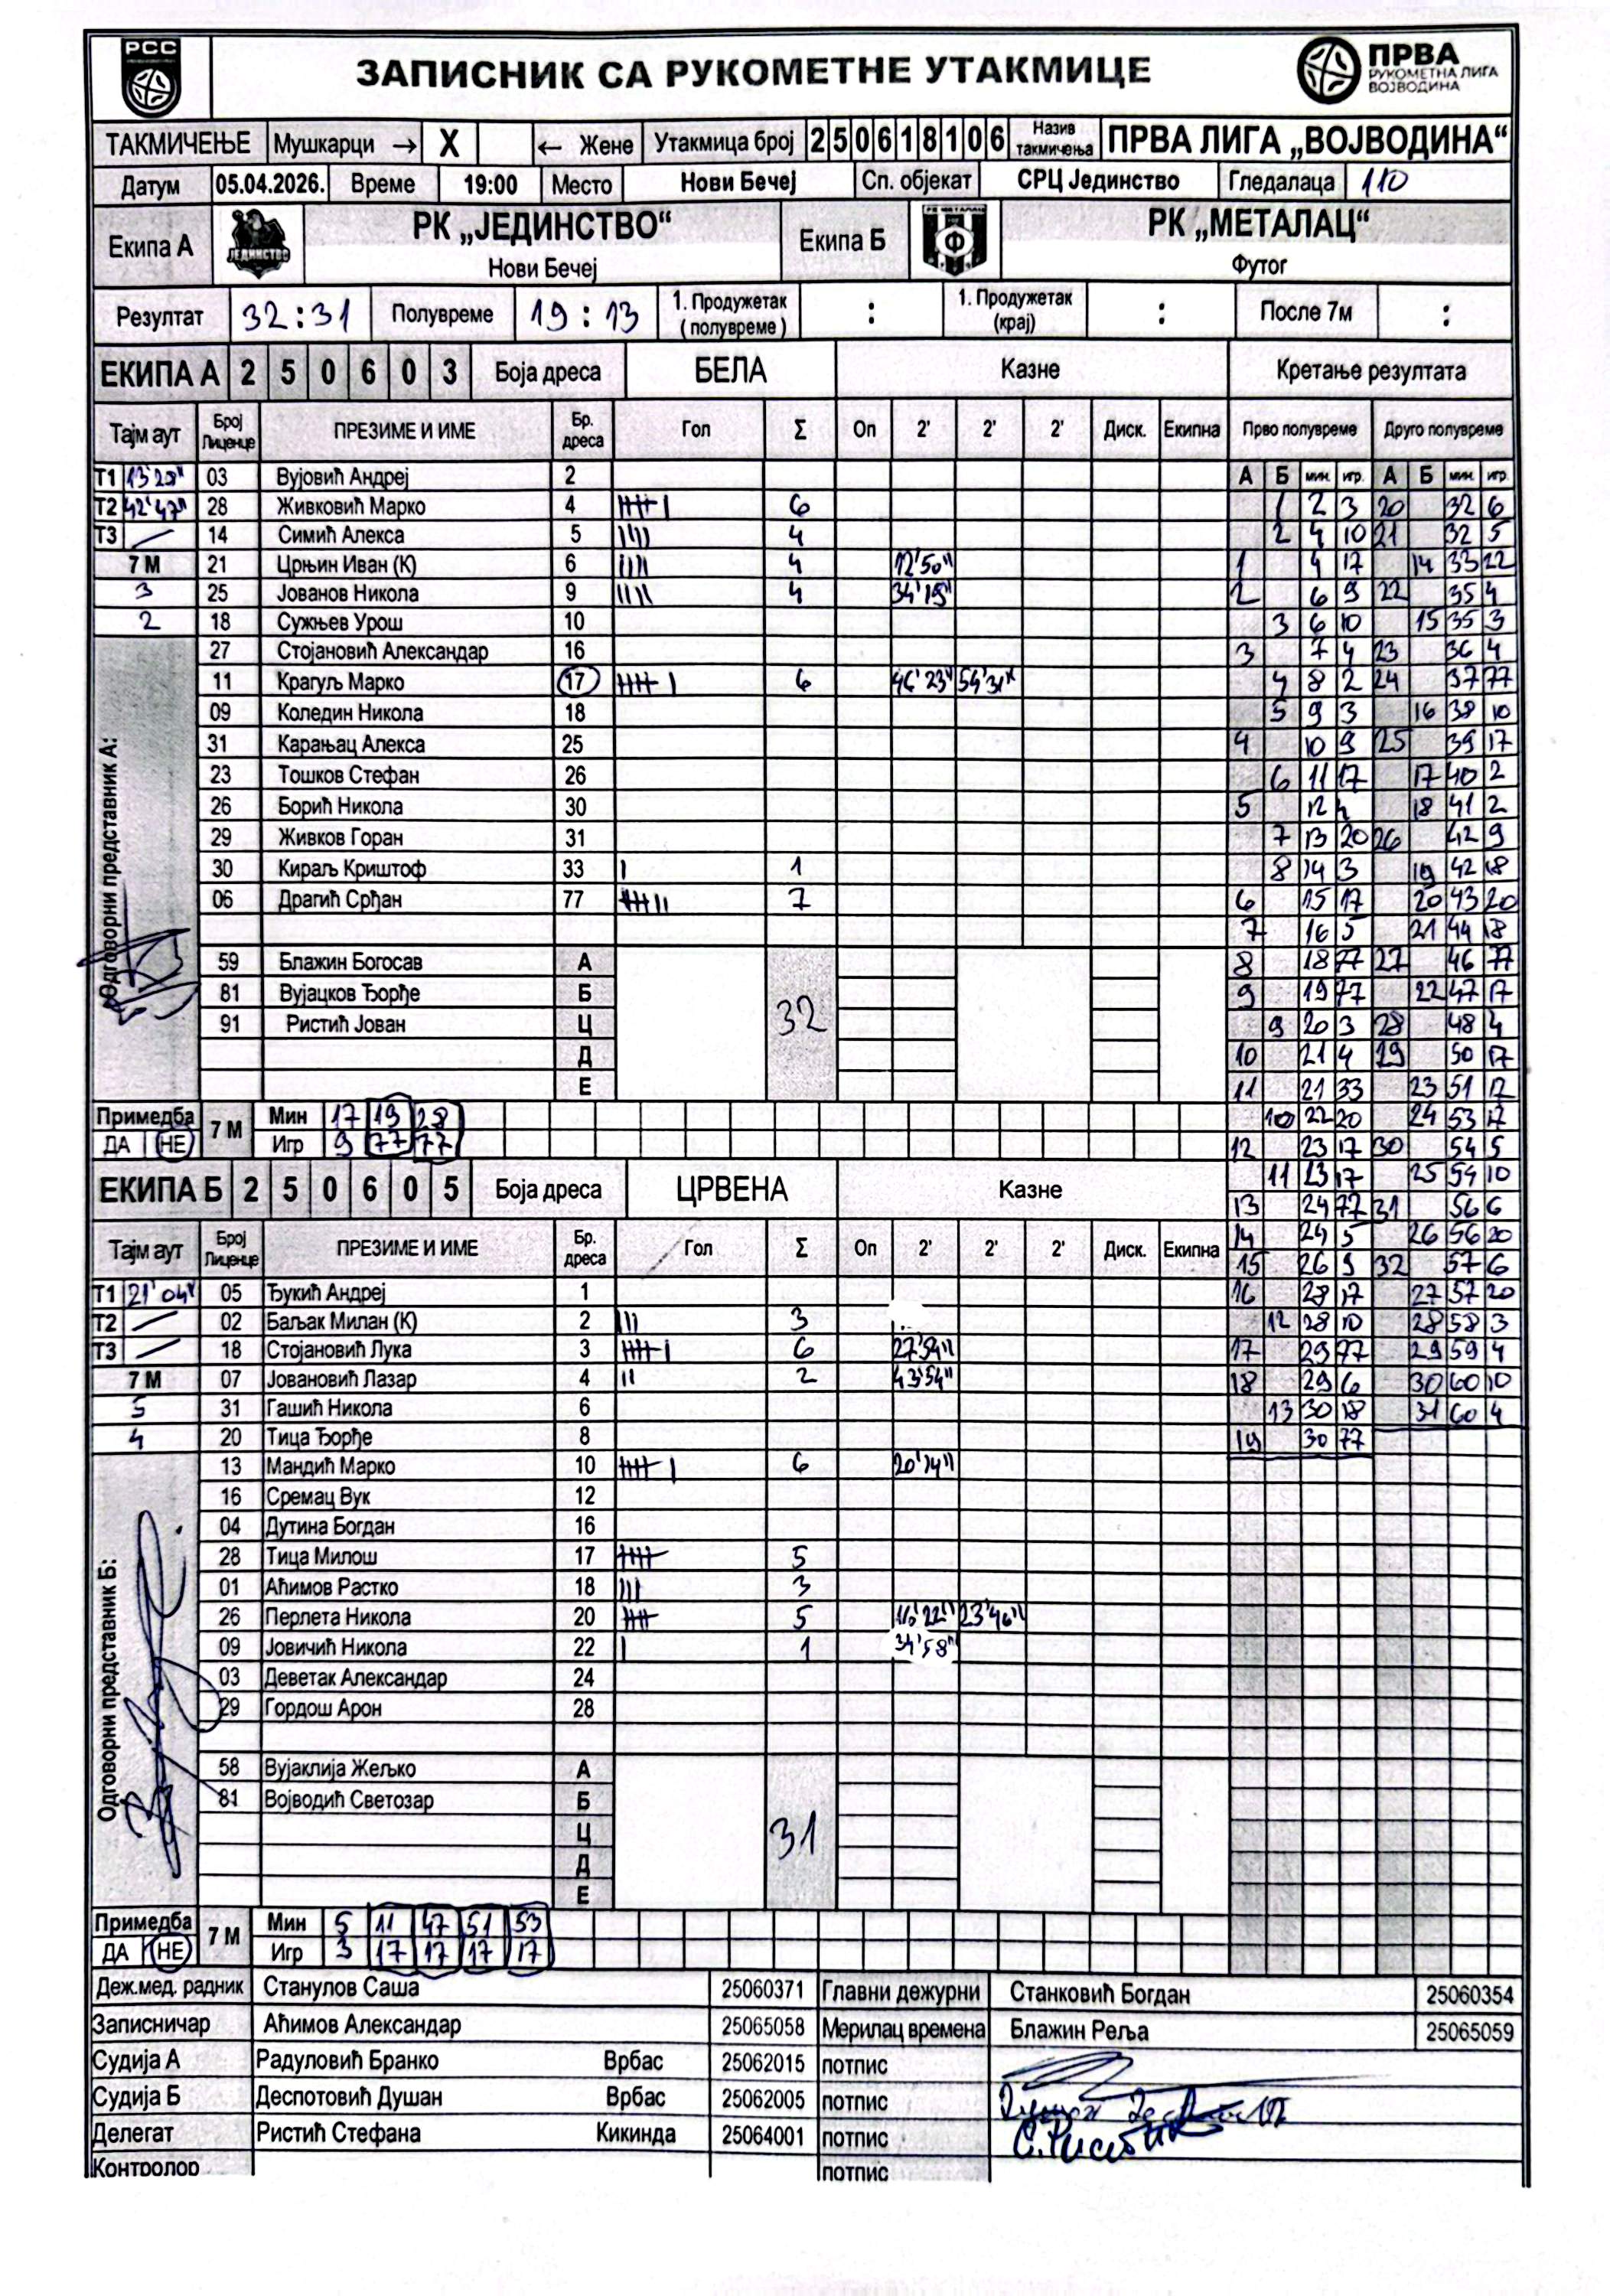 РСС
ЗАПИСНИК СА РУКОМЕТНЕ УТАКМИЦЕ
ПРВА
РУКОМЕТНА ЛИГА
ВОЈВОДИНА
ТАКМИЧЕЊЕ Мушкарци → X ← Жене Утакмица број 250618106 Назив такмичења ПРВА ЛИГА „ВОЈВОДИНА“
Датум 05.04.2026. Време 19:00 Место Нови Бечеј Сп. објекат СРЦ Јединство Гледалаца 110
Екипа А РК „ЈЕДИНСТВО“ Нови Бечеј Екипа Б РК „МЕТАЛАЦ“ Футог
Резултат 32:31 Полувреме 19:13 1. Продужетак (полувреме) : 1. Продужетак (крај) : После 7м :
ЕКИПА А 2 5 0 6 0 3 Боја дреса БЕЛА Казне Кретање резултата
Тајм аут Број Лиценце ПРЕЗИМЕ И ИМЕ Бр. дреса Гол Σ Оп 2' 2' 2' Диск. Екипна Прво полувреме Друго полувреме
Т1 13'28" 03 Вујовић Андреј 2 А Б мин. игр. А Б мин. игр.
Т2 42'47" 28 Живковић Марко 4 6 1 2 3 20 32 6
Т3 14 Симић Алекса 5 4 2 4 10 21 32 5
7 М 21 Црњин Иван (К) 6 4 12'50" 1 4 17 14 33 22
3 25 Јованов Никола 9 4 34'15" 2 6 9 22 35 4
2 18 Сужњев Урош 10 3 6 10 15 35 3
27 Стојановић Александар 16 3 7 4 23 36 4
11 Крагуљ Марко 17 6 46'23" 54'31" 4 8 2 24 37 77
09 Коледин Никола 18 5 9 3 16 38 10
31 Карањац Алекса 25 4 10 9 25 39 17
23 Тошков Стефан 26 6 11 17 17 40 2
26 Борић Никола 30 5 12 4 18 41 2
29 Живков Горан 31 7 13 20 26 42 9
30 Кираљ Криштоф 33 1 8 14 3 19 42 18
06 Драгић Срђан 77 7 6 15 17 20 43 20
7 16 5 21 44 18
59 Блажин Богосав А 8 18 77 27 46 77
81 Вујацков Ђорђе Б 9 19 77 22 47 17
91 Ристић Јован Ц 32 9 20 3 28 48 4
Д 10 21 4 29 50 17
Е 11 21 33 23 51 17
Одговорни представник А:
Примедба 7 М Мин 17 19 28 10 22 20 24 53 17
ДА НЕ Игр 9 77 77 12 23 17 30 54 5
11 23 17 25 54 10
ЕКИПА Б 2 5 0 6 0 5 Боја дреса ЦРВЕНА Казне 13 24 77 31 56 6
Тајм аут Број Лиценце ПРЕЗИМЕ И ИМЕ Бр. дреса Гол Σ Оп 2' 2' 2' Диск. Екипна 14 24 5 26 56 20
15 26 9 32 57 6
Т1 21'04" 05 Ђукић Андреј 1 16 28 17 27 57 20
Т2 02 Баљак Милан (К) 2 3 12 28 10 28 58 3
Т3 18 Стојановић Лука 3 6 27'54" 17 29 77 29 59 4
7 М 07 Јовановић Лазар 4 2 43'54" 18 29 6 30 60 10
5 31 Гашић Никола 6 13 30 18 31 60 4
4 20 Тица Ђорђе 8 19 30 77
13 Мандић Марко 10 6 20'14"
16 Сремац Вук 12
04 Дутина Богдан 16
28 Тица Милош 17 5
01 Аћимов Растко 18 3
26 Перлета Никола 20 5 16'22" 23'46"
09 Јовичић Никола 22 1 34'58"
03 Деветак Александар 24
29 Гордош Арон 28
58 Вујаклија Жељко А
81 Војводић Светозар Б
Ц 31
Д
Е
Одговорни представник Б:
Примедба 7 М Мин 5 11 47 51 53
ДА НЕ Игр 3 17 17 17 17
Деж.мед. радник Станулов Саша 25060371 Главни дежурни Станковић Богдан 25060354
Записничар Аћимов Александар 25065058 Мерилац времена Блажин Реља 25065059
Судија А Радуловић Бранко Врбас 25062015 потпис
Судија Б Деспотовић Душан Врбас 25062005 потпис
Делегат Ристић Стефана Кикинда 25064001 потпис С.Ристић
Контролор потпис